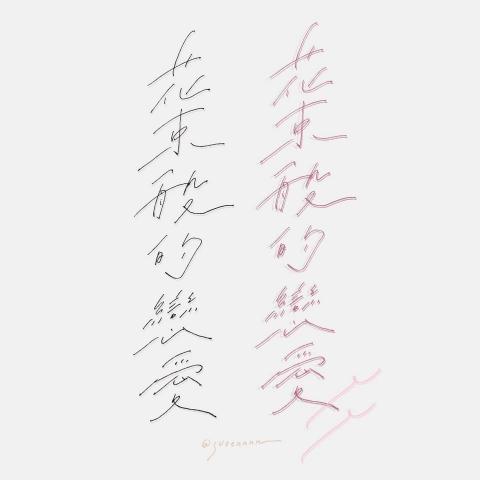 花束般的戀愛
花束般的戀愛